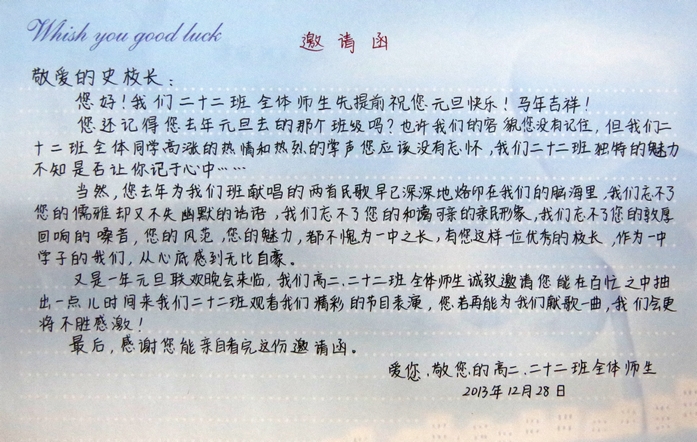 Whish you good luck
邀请函
敬爱的史校长:
您好!我们二十二班全体师生先提前祝您元旦快乐!马年吉祥!
您还记得您去年元旦去的那个班级吗?也许我们的容貌您没有记住,但我们二
十二班全体同学高涨的热情和热烈的掌声您应该没有忘怀,我们二十二班独特的魅力
不知是否让你记于心中……
当然,您去年为我们班献唱的两首民歌早已深深地烙印在我们的脑海里,我们忘不了
您的儒雅却又不失幽默的话语,我们忘不了您的和蔼可亲的亲民形象,我们忘不了您的敦厚
回响的嗓音,您的风范,您的魅力,都不愧为一中之长,有您这样一位优秀的校长,作为一中
学子的我们,从心底感到无比自豪。
又是一年元旦联欢晚会来临,我们高二.二十二班全体师生诚致邀请您能在百忙之中抽
出一点儿时间来我们二十二班观看我们精彩的节目表演,您若再能为我们献歌一曲,我们会更
将不胜感激!
最后,感谢您能亲自看完这份邀请函。
爱您.敬您的高二.二十二班全体师生
2013年12月28日